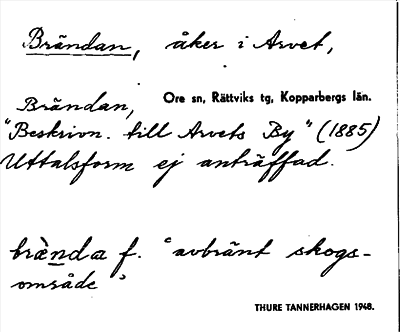 Brändan, åker i Arvet,
Ore sn, Rättviks tg, Kopparbergs län.
Brändan,
"Beskrivn. till Arvets By" (1885)
Uttalsform ej anträffad.
brὲnda f. 'avbränt skogs-
område'
THURE TANNERHAGEN 1948.